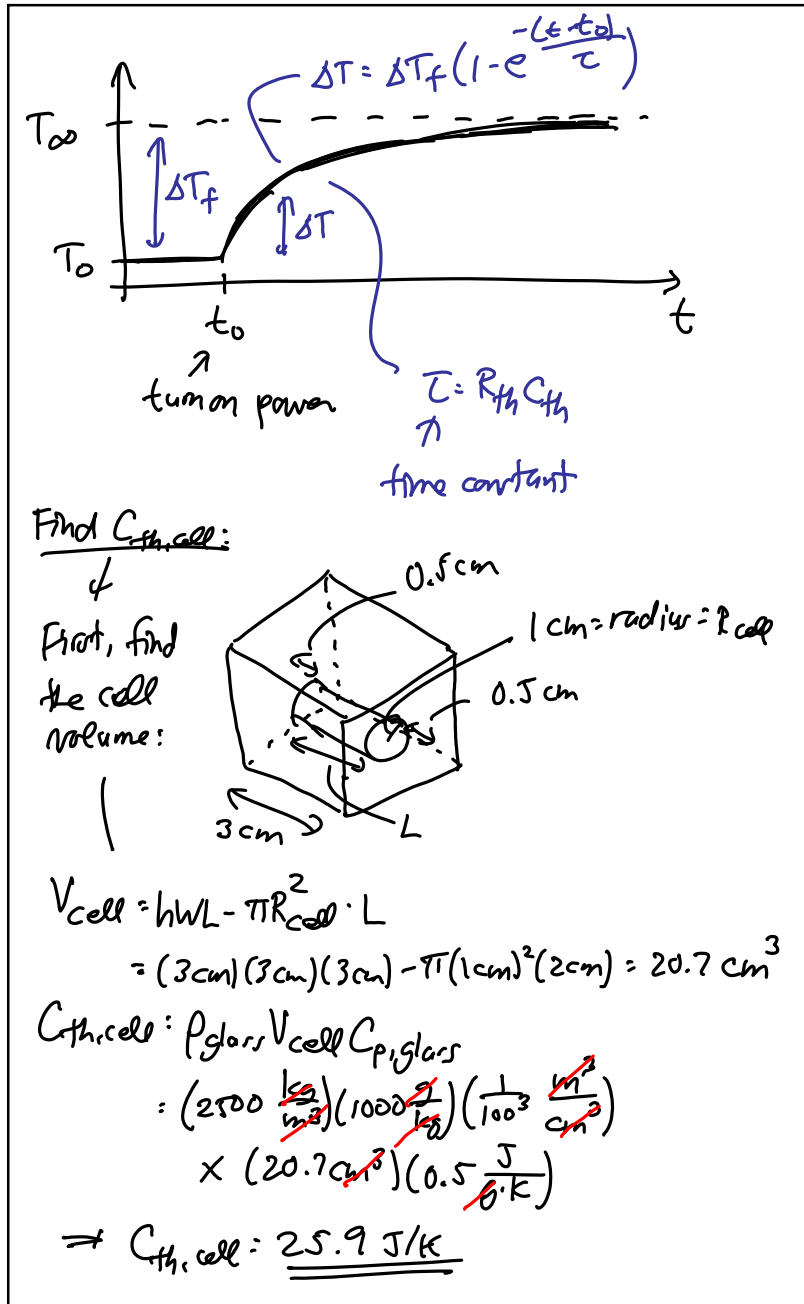 ΔT = ΔT_f (1 - e^{-(t-t_0)/τ})
T_∞
ΔT_f
ΔT
T_0
t_0
t
turn on power
τ = R_th C_th
time constant
Find C_th,cell:
First, find
the cell
volume:
0.5 cm
1 cm = radius = R_cell
0.5 cm
3 cm
L
V_cell = hWL - πR_cell^2 · L
= (3cm)(3cm)(3cm) - π(1cm)^2(2cm) = 20.7 cm^3
C_th,cell = ρ_glass V_cell C_p,glass
= (2500 kg/m^3)(1000 g/kg)(1/100^3 m^3/cm^3)
× (20.7 cm^3)(0.5 J/g·K)
⇒ C_th,cell = 25.9 J/K